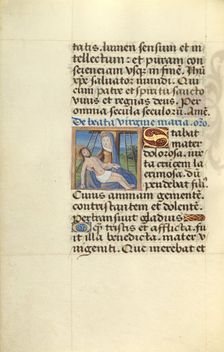 tatis. lumen sensuum et in
tellectum: et puram con
scienciam vsq; in finē. Tha
xpe saluator mundi. Qui
cum patre et spiritu sancto
viuis et regnas deus. Per
omnia secula seculorū. Amē.
De beata virgine maria. oro.
Stabat
mater
dolorosa. iux
ta crucem la
crimosa. dū
pendebat fili⁹.
Cuius animam gementē.
contristantem et dolentē.
Pertransiuit gladius
O q̄ tristis et afflicta. fu
it illa benedicta. mater v
nigeniti. Que merebat et